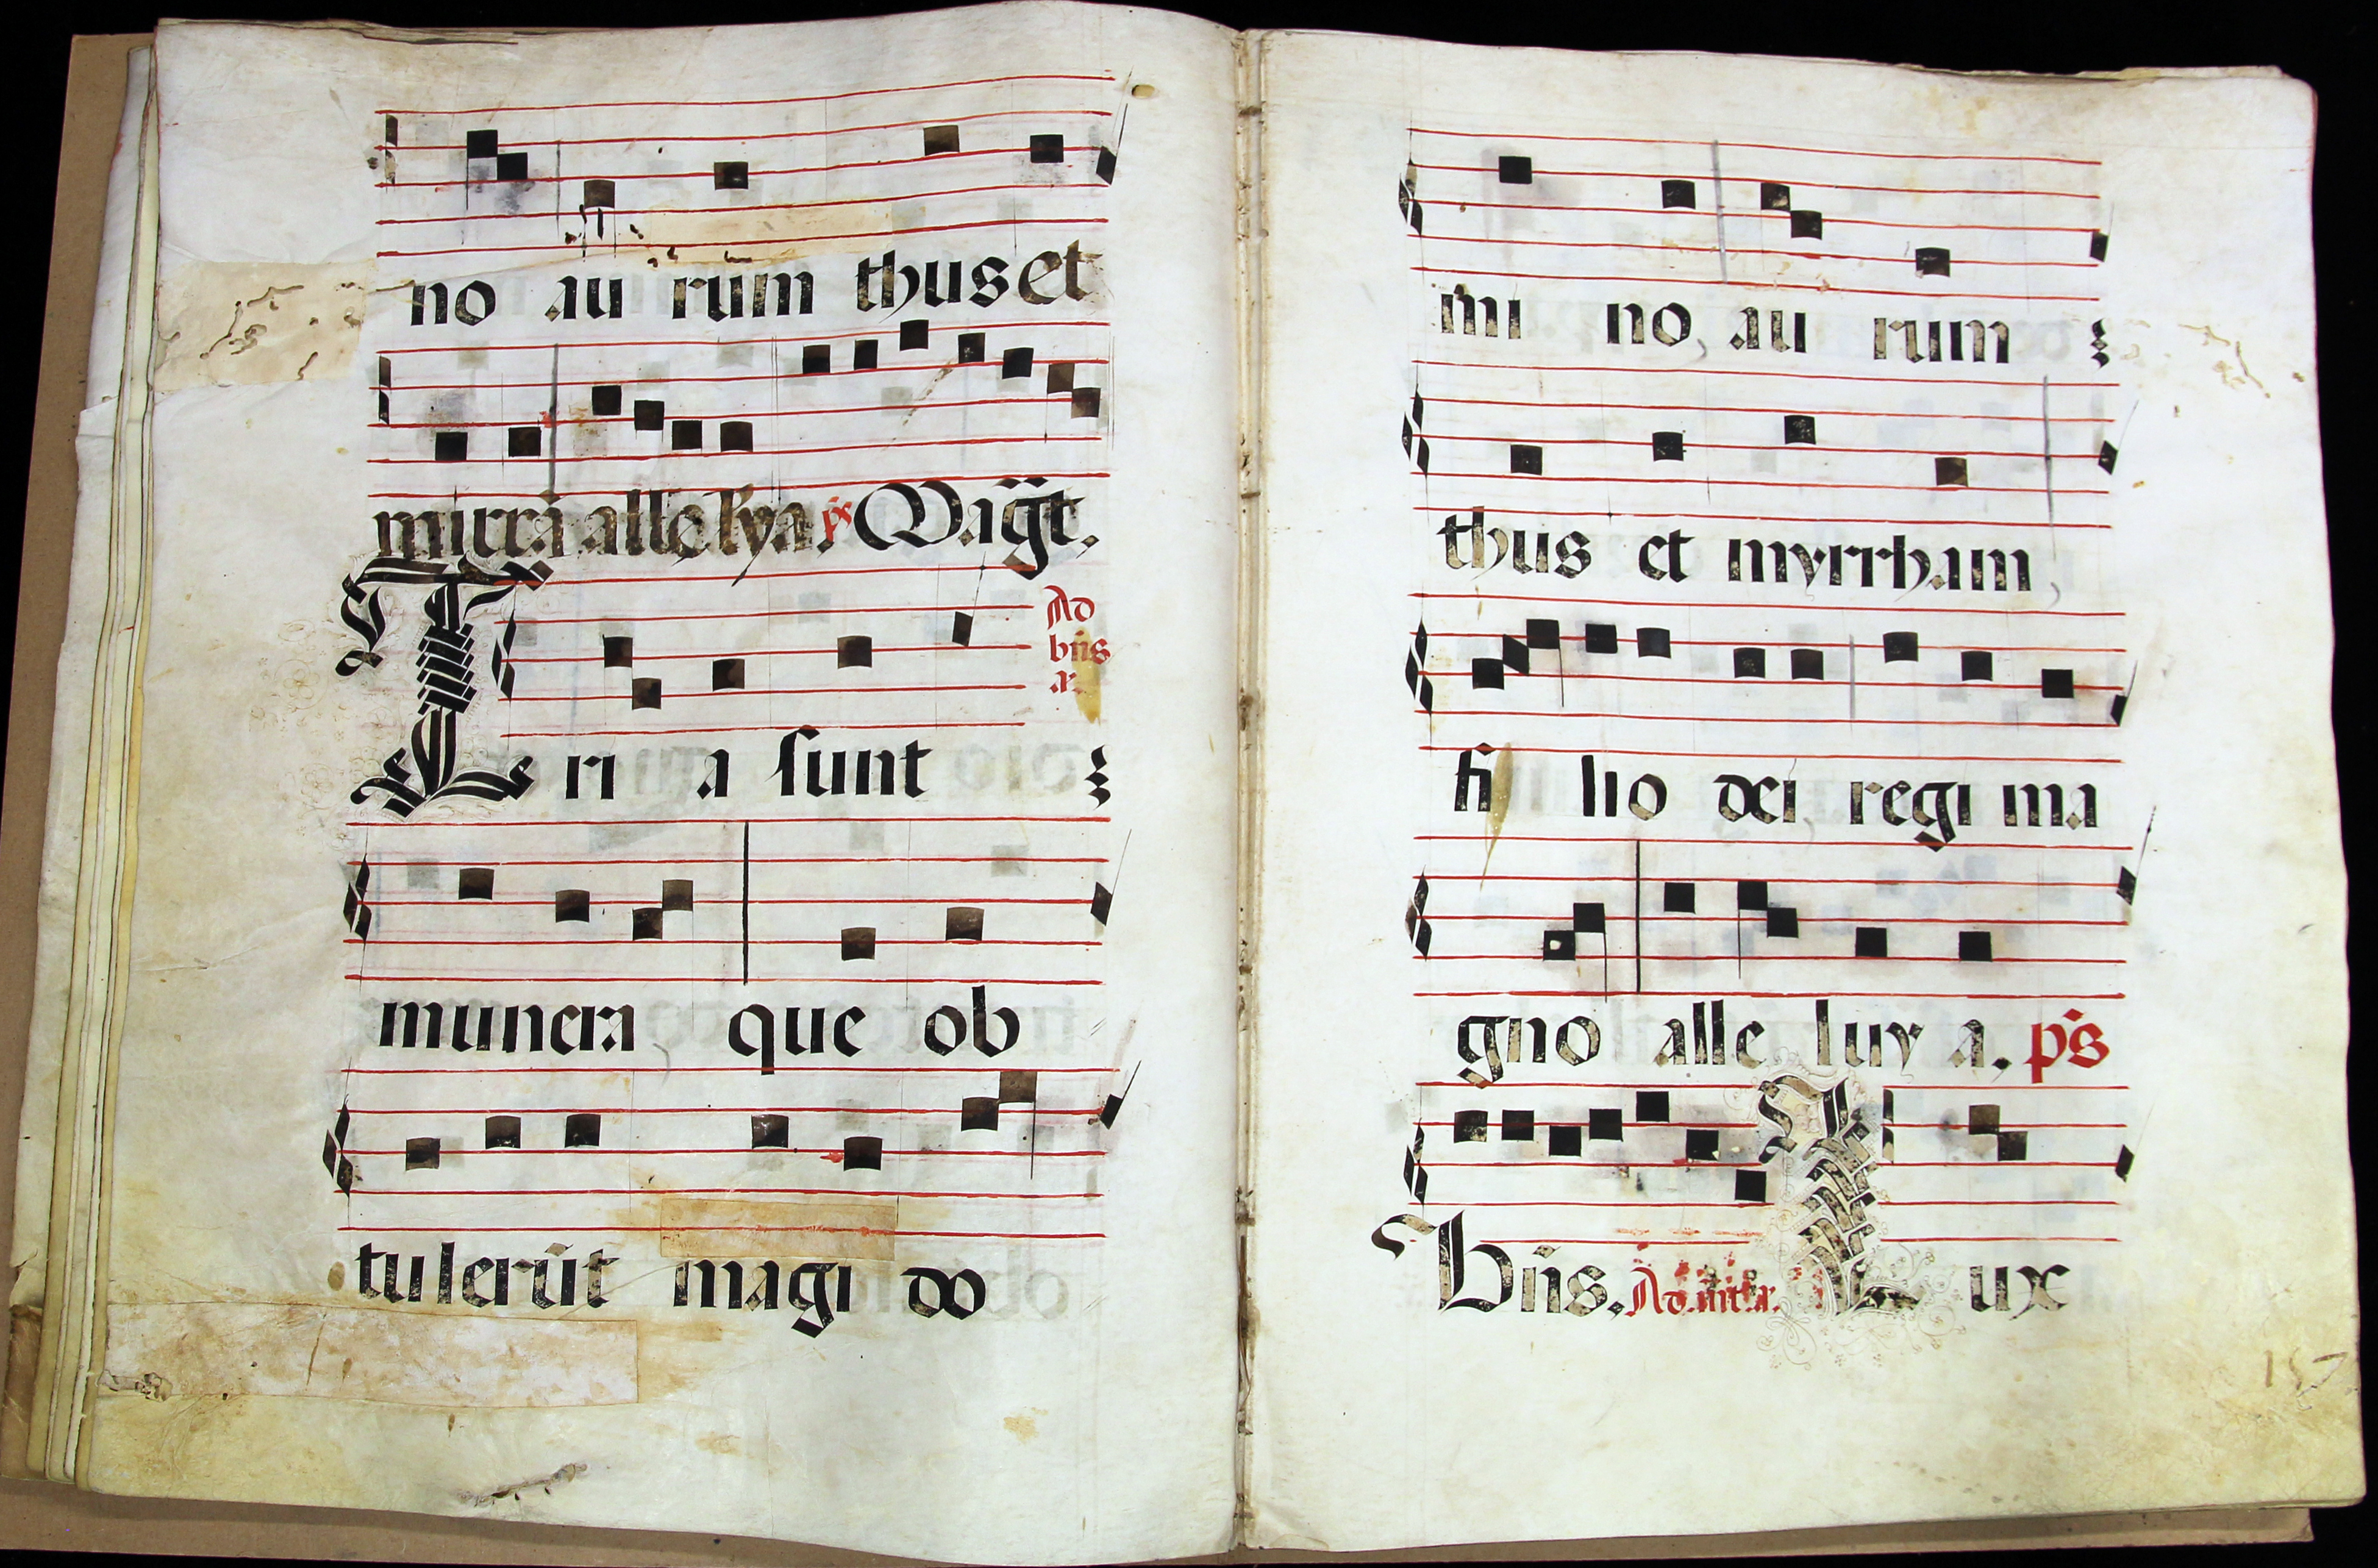 no au rum thus et
mirrā alle lya. ps Magt.
Ad
bñs
a.
T ri a sunt
munera, que ob
tulerūt magi do
mi no, au rum
thus et myrrham,
fi lio dei, regi ma
gno alle luy a. ps
Bñs. Ad L ux
157